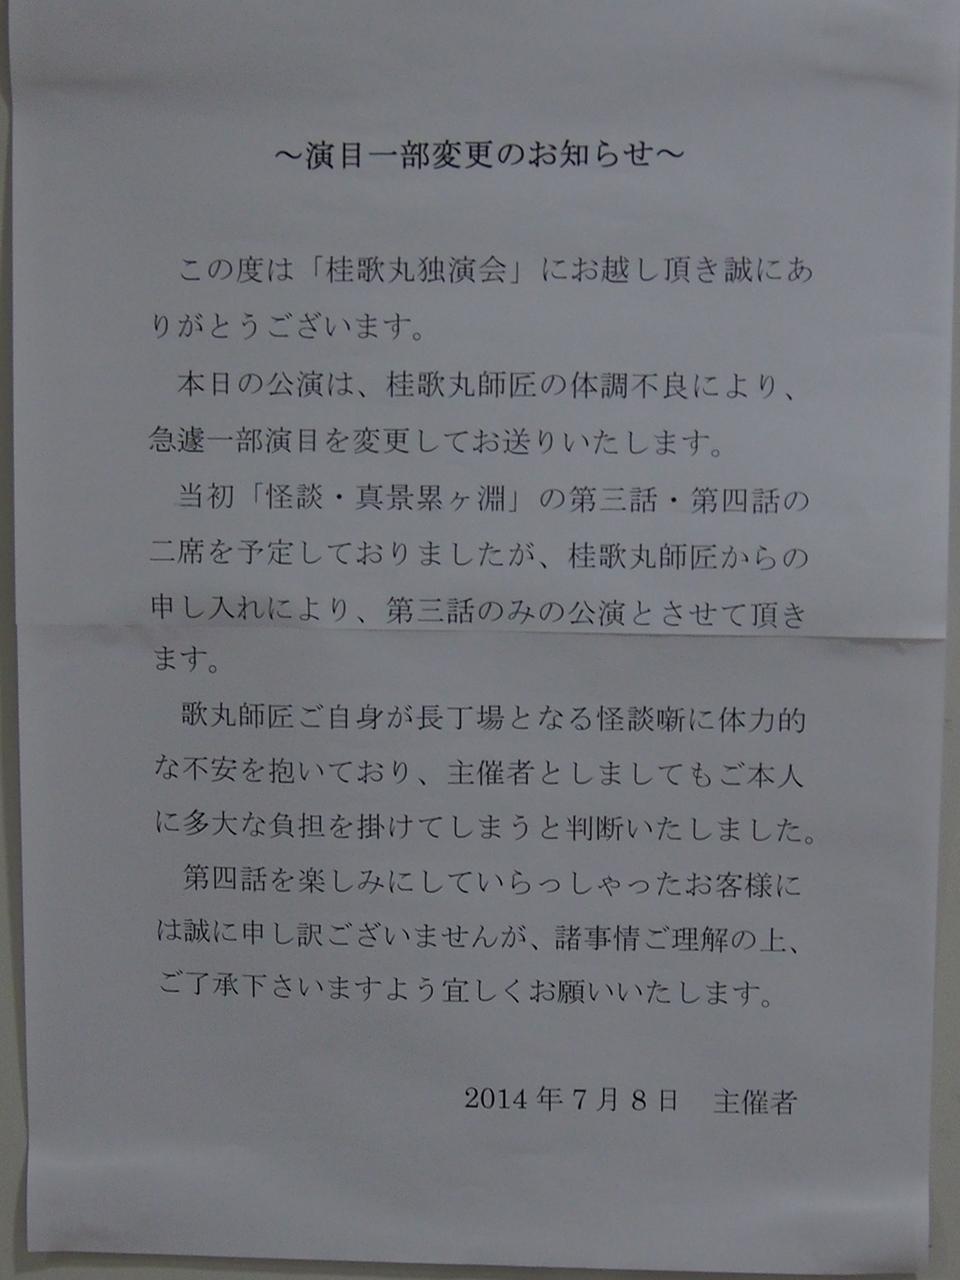 ～演目一部変更のお知らせ～
この度は「桂歌丸独演会」にお越し頂き誠にあ
りがとうございます。
本日の公演は、桂歌丸師匠の体調不良により、
急遽一部演目を変更してお送りいたします。
当初「怪談・真景累ヶ淵」の第三話・第四話の
二席を予定しておりましたが、桂歌丸師匠からの
申し入れにより、第三話のみの公演とさせて頂き
ます。
歌丸師匠ご自身が長丁場となる怪談噺に体力的
な不安を抱いており、主催者としましてもご本人
に多大な負担を掛けてしまうと判断いたしました。
第四話を楽しみにしていらっしゃったお客様に
は誠に申し訳ございませんが、諸事情ご理解の上、
ご了承下さいますよう宜しくお願いいたします。
2014 年 7 月 8 日　主催者